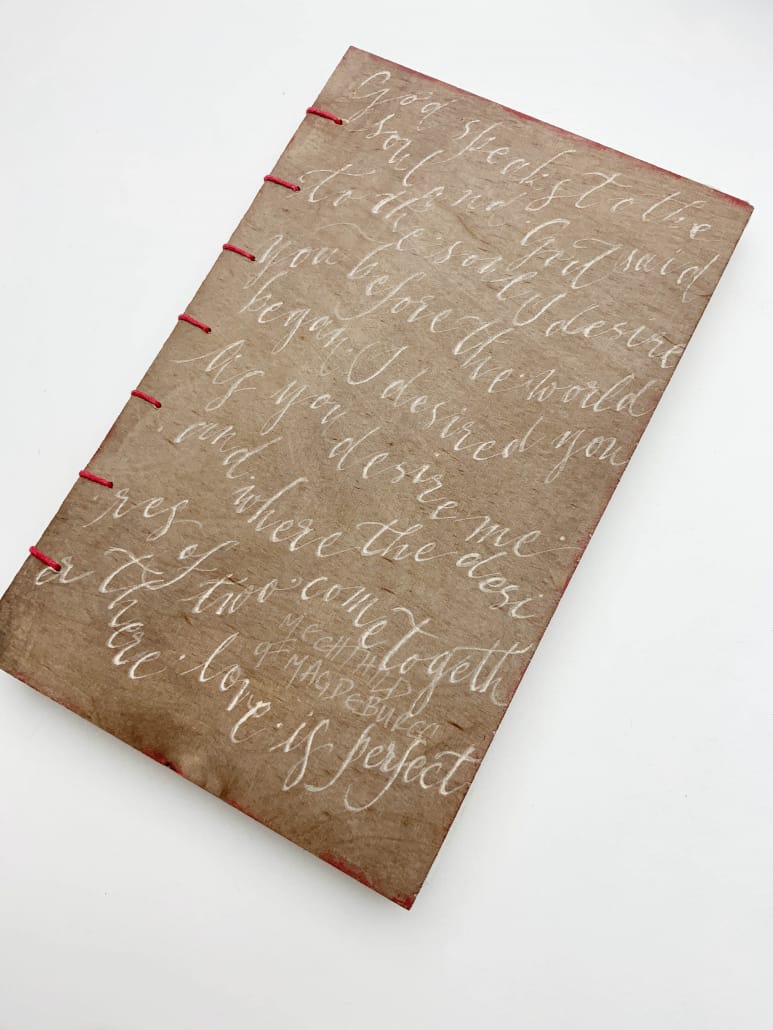 God speaks to the
soul and God said
to the soul I desire
you before the world
began. I desired you
As you desire me.
and where the desi
res of two come togeth
er there love is perfect
MECHTHILD
of MAGDEBURG